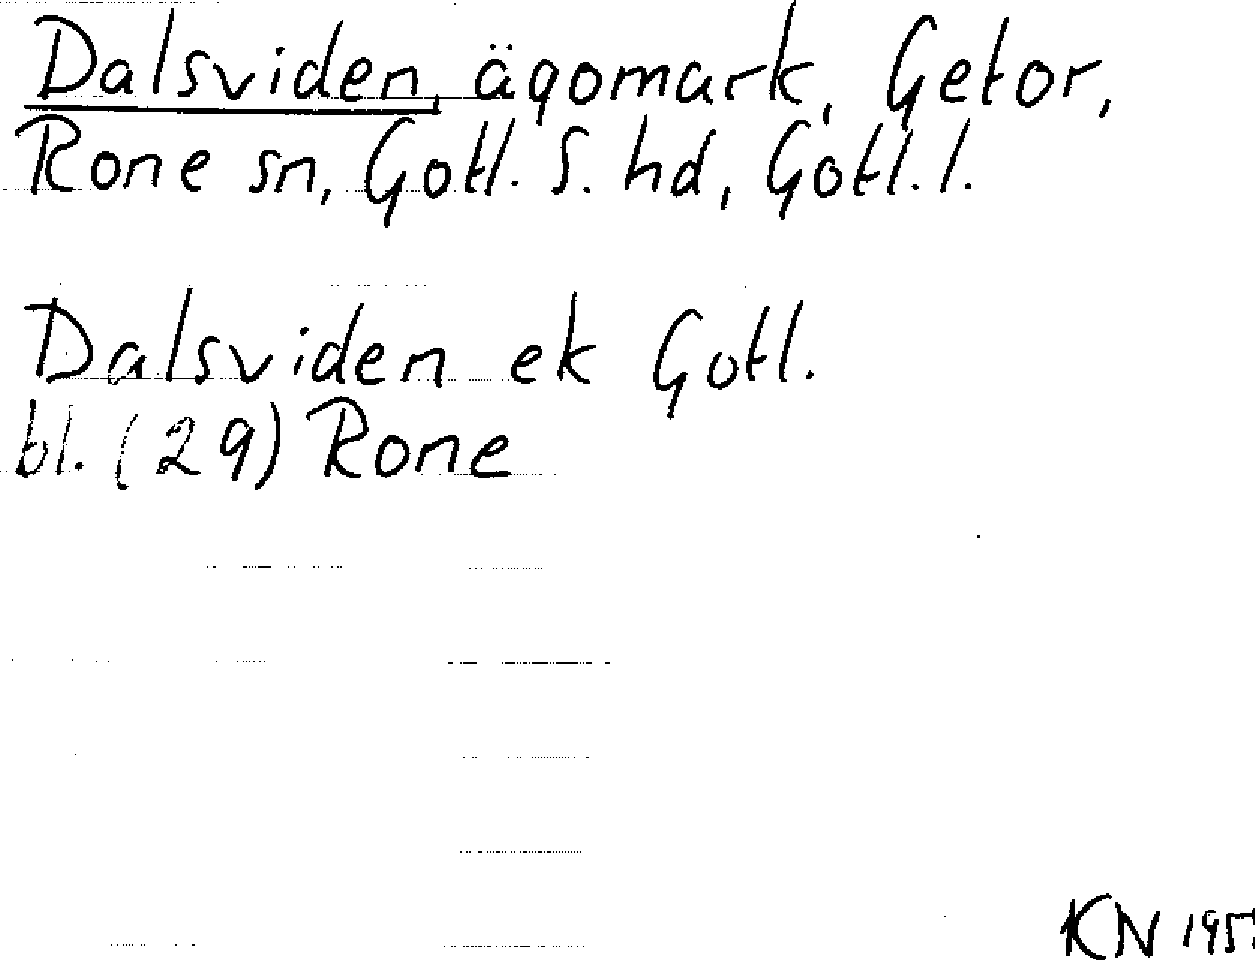 Dalsviden, ägomark, Getor,
Rone sn, Gotl. S. hd, Gotl. l.
Dalsviden ek Gotl.
bl. (29) Rone
KN